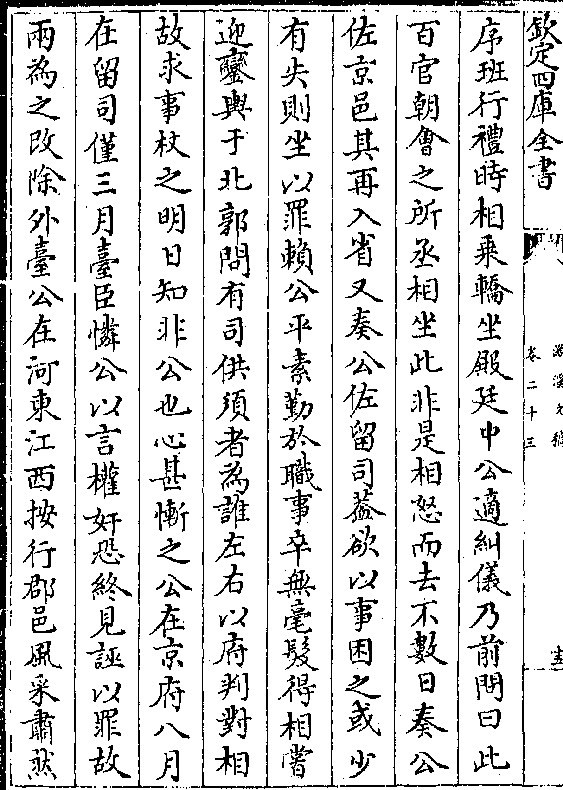 欽定四庫全書
卷二十三
序班行禮時相乘轎坐殿廷中公適糾儀乃前問曰此
百官朝會之所丞相坐此非是相怒而去不數日奏公
佐京邑其再入省又奏公佐留司葢欲以事困之或少
有失則坐以罪賴公平素勤於職事卒無毫髮得相嘗
迎鑾輿于北郭問有司供須者為誰左右以府判對相
故求事杖之明日知非公也心甚慚之公在京府八月
在留司僅三月臺臣憐公以言權奸恐終見誣以罪故
兩為之改除外臺公在河東江西按行郡邑風采肅然